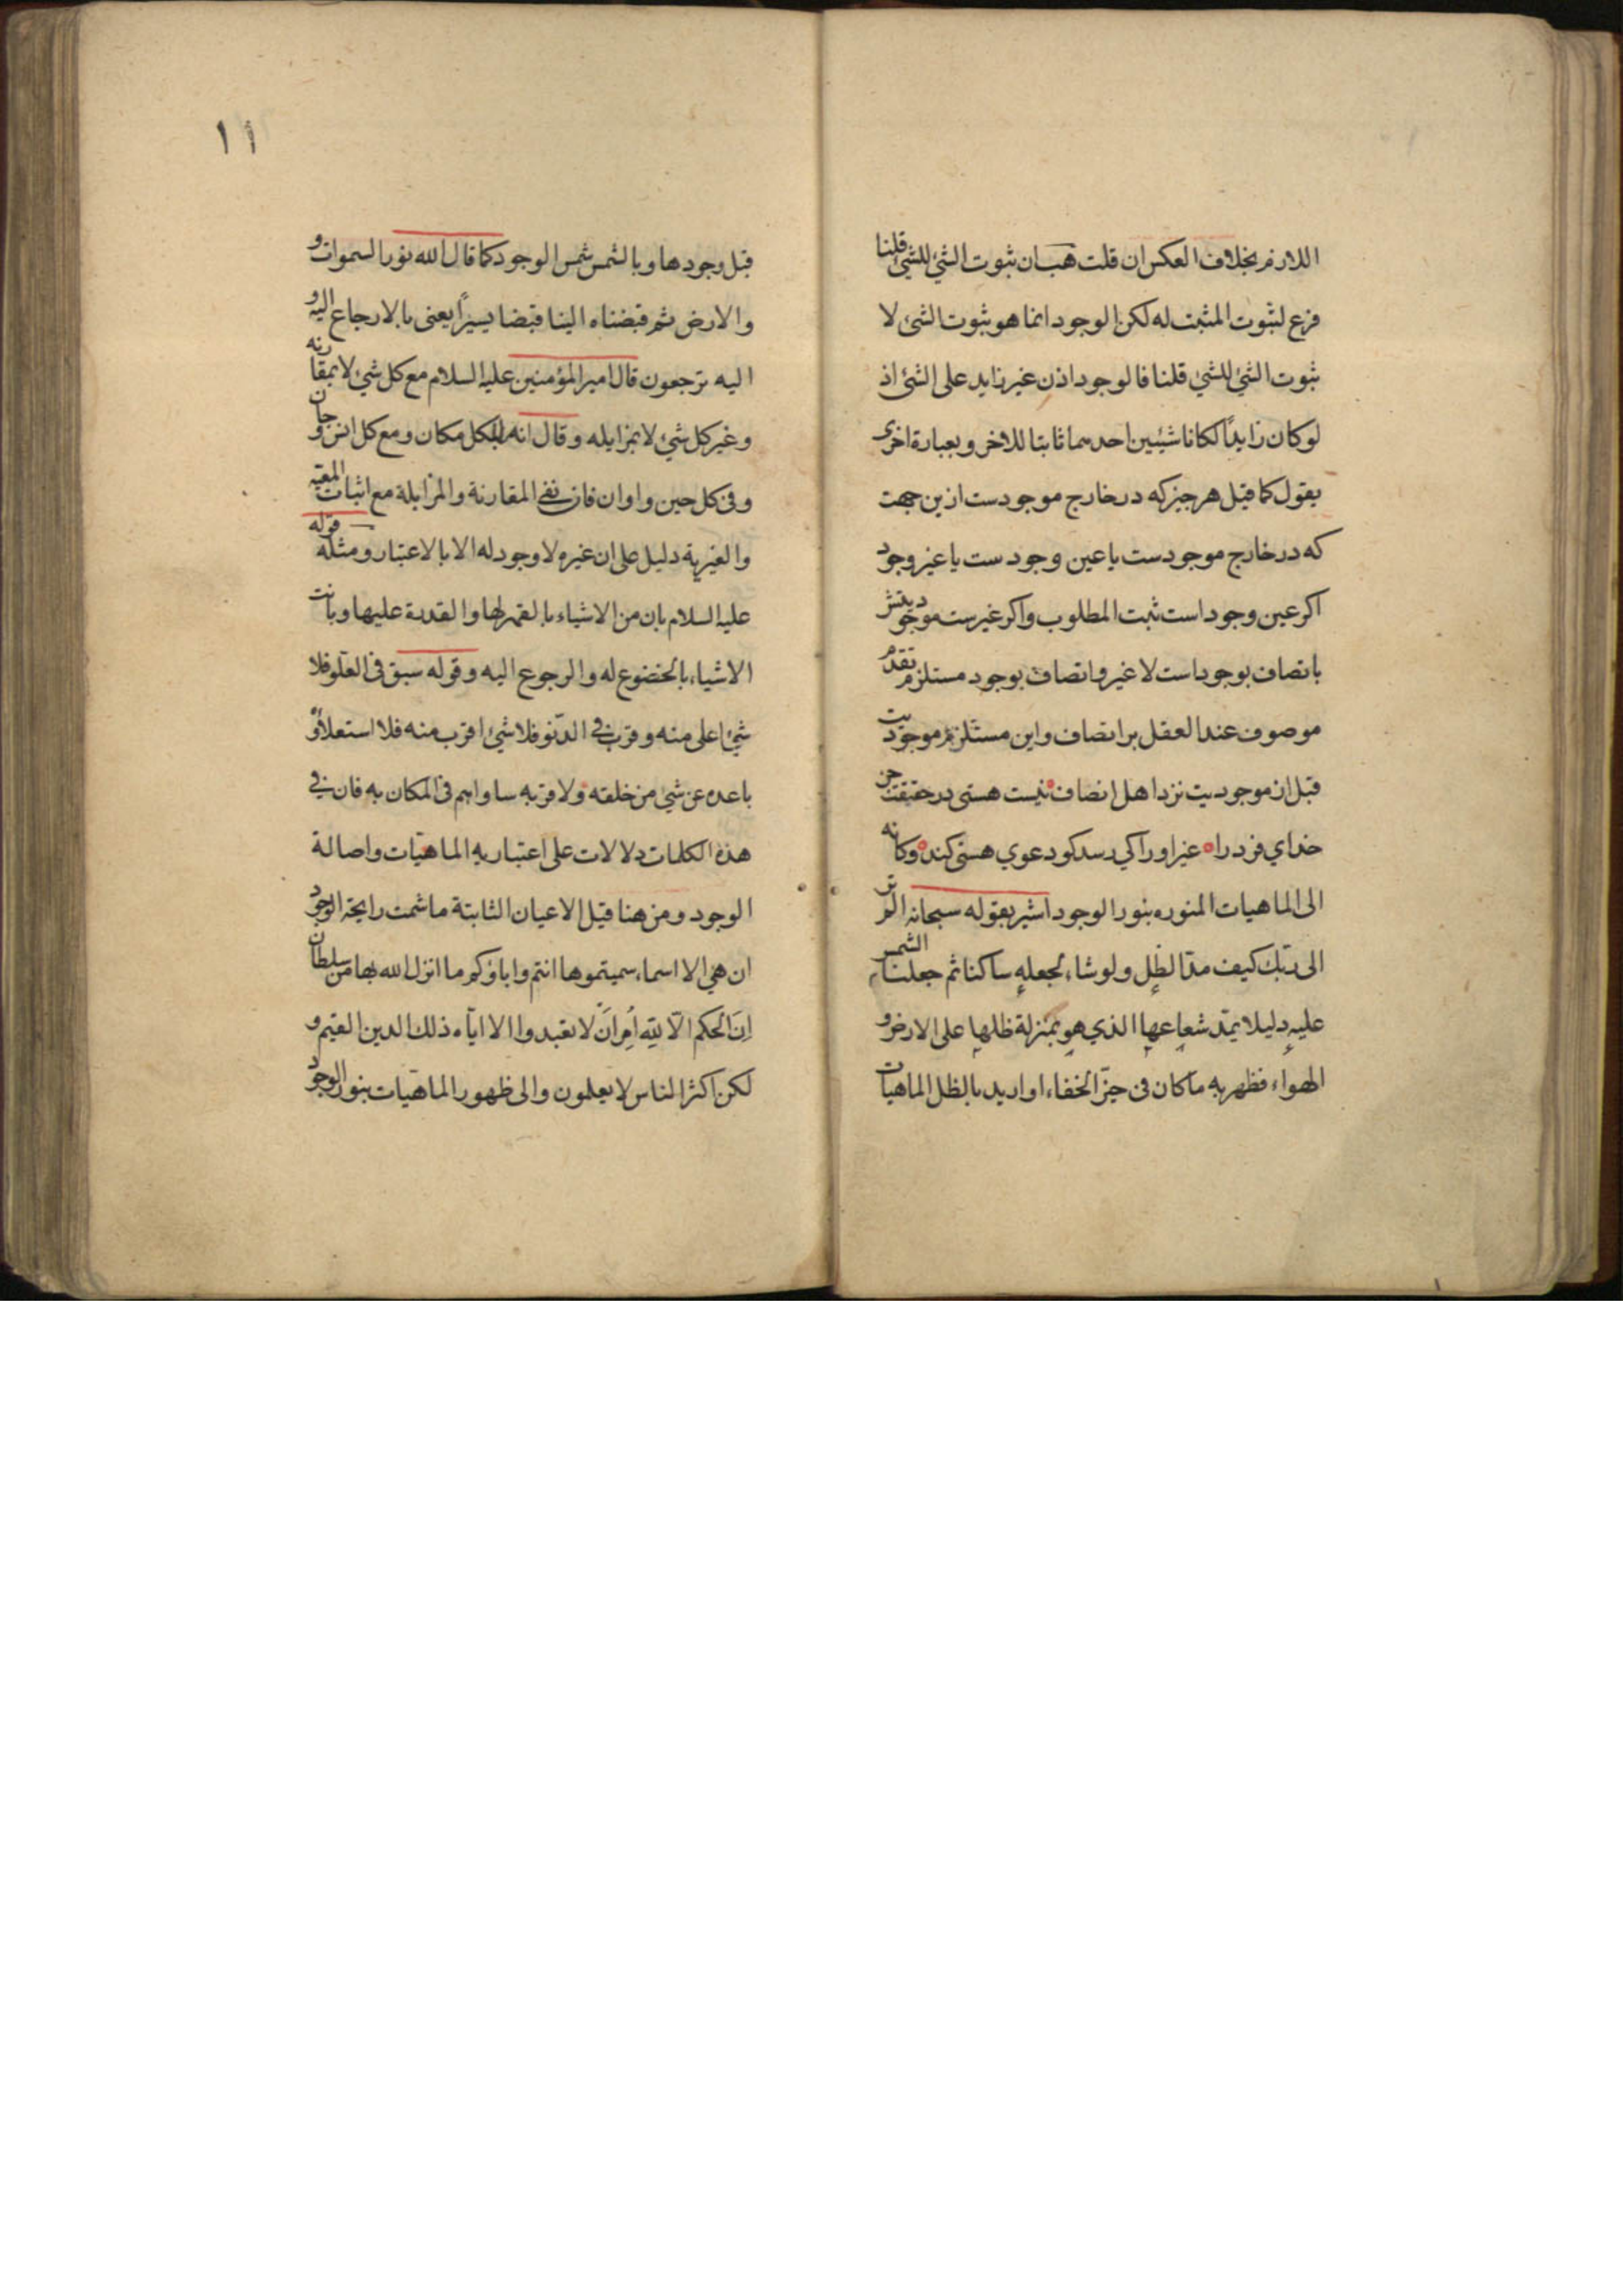 اللازم بخلاف العكس ان قلت هب ان ثبوت الشئ للشئ قلنا
فرع لثبوت المثبت له لكن الوجود انما هو ثبوت الشئ لا
ثبوت الشئ للشئ قلنا فالوجود اذن غير زايد على الشئ اذ
لو كان زايدًا لكانا شيئين احدهما ثابتا للاخر وبعبارة اخرى
يقول كما قيل هر چيز كه در خارج موجودست ازين جهت
كه در خارج موجودست يا عين وجودست يا غير وجود
اكر عين وجود است ثبت المطلوب واكر غيرست موجوديتش
باتصاف بوجود است لا غير واتصاف بوجود مستلزم تقدم
موصوف عند العقل بر اتصاف واين مستلزم موجوديت
قبل از موجوديت نزد اهل انصاف نيست هستى در حقيقت جز
خداي فرد را غير او را كي رسد كو دعوي هستى كند وكانه
الى الماهيات المنوره بنور الوجود اشير بقوله سبحانه الم تر
الى ربك كيف مد الظل ولو شاء لجعله ساكنا ثم جعلنا الشمس
عليه دليلا يمد شعاعها الذي هو بمنزلة ظلها على الارض و
الهواء فظهر به ما كان فى حيّز الخفاء او اريد بالظل الماهيات
١١
قبل وجودها وبالشمس شمس الوجود كما قال الله نور السموات و
والارض ثم قبضناه الينا قبضا يسيرًا يعنى بالارجاع اليه و
اليه ترجعون قال امير المؤمنين عليه السلام مع كل شئ لا بمقارنه
وغير كل شئ لا بمزايله وقال انه لبكل مكان ومع كل انس وجان
وفى كل حين واوان فان نفى المقارنة والمزايلة مع اثبات المعيّه
والغيرية دليل على ان غيره لا وجود له الا بالاعتبار ومثله قوله
عليه السلام بان من الاشياء بالقهر لها والقدرة عليها وبانت
الاشياء بالخضوع له والرجوع اليه وقوله سبق فى العلو فلا
شئ اعلى منه وقرب في الدنو فلا شئ اقرب منه فلا استعلاؤه
باعده عن شئ من خلقه ولا قربه ساواهم فى المكان به فان في
هذه الكلمات دلالات على اعتباريه الماهيّات واصالة
الوجود ومن هنا قيل الاعيان الثابتة ما شمت رايحة الوجود
ان هي الا اسماء سميتموها انتم واباؤكم ما انزل الله بها من سلطان
اِنَ الحكم الّا لِلّه اُمِرَ انَ لا تعبدوا الا ايّاه ذلك الدين القيم و
لكن اكثر الناس لا يعلمون والى ظهور الماهيّات بنور الوجود